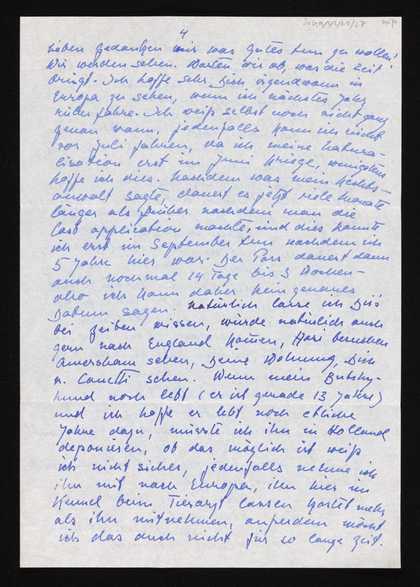 4
lieben Gedanken mir was Gutes tun zu wollen!
Wir werden sehen. Warten wir ab, was die Zeit
bringt. Ich hoffe sehr Dich irgendwann in
Europa zu sehen, wenn ich nächstes Jahr
rüberfahre. Ich weiß selbst noch nicht ganz
genau wann, jedenfalls kann ich nicht
vor Juli fahren, da ich meine Natura-
lisation erst im Juni kriege, wenigstens
hoffe ich dies. Nachdem was mein Rechts-
anwalt sagte, dauert es jetzt viele Monate
länger als früher nachdem man die
last application machte, und dies konnte
ich erst im September tun nachdem ich
5 Jahre hier war. Der Pass dauert dann
auch nochmal 14 Tage bis 3 Wochen -
also ich kann daher kein genaues
Datum sagen. Natürlich lasse ich Dis
bei Zeiten wissen, würde natürlich auch
gern nach England kommen,
Amersham sehen, Deine Wohnung, Dich
u. Canetti sehen. Wenn mein
hund noch lebt (er ist gerade 13 Jahre)
und ich hoffe er lebt noch etliche
Jahre dazu, müsste ich ihn in Holland
deponieren, ob das möglich ist weiß
ich nicht sicher, jedenfalls nehme ich
ihn mit nach Europa, ihn hier im
Kennel beim Tierarzt lassen kostet mehr
als ihn mitnehmen, außerdem möcht
ich das auch nicht für so lange Zeit.